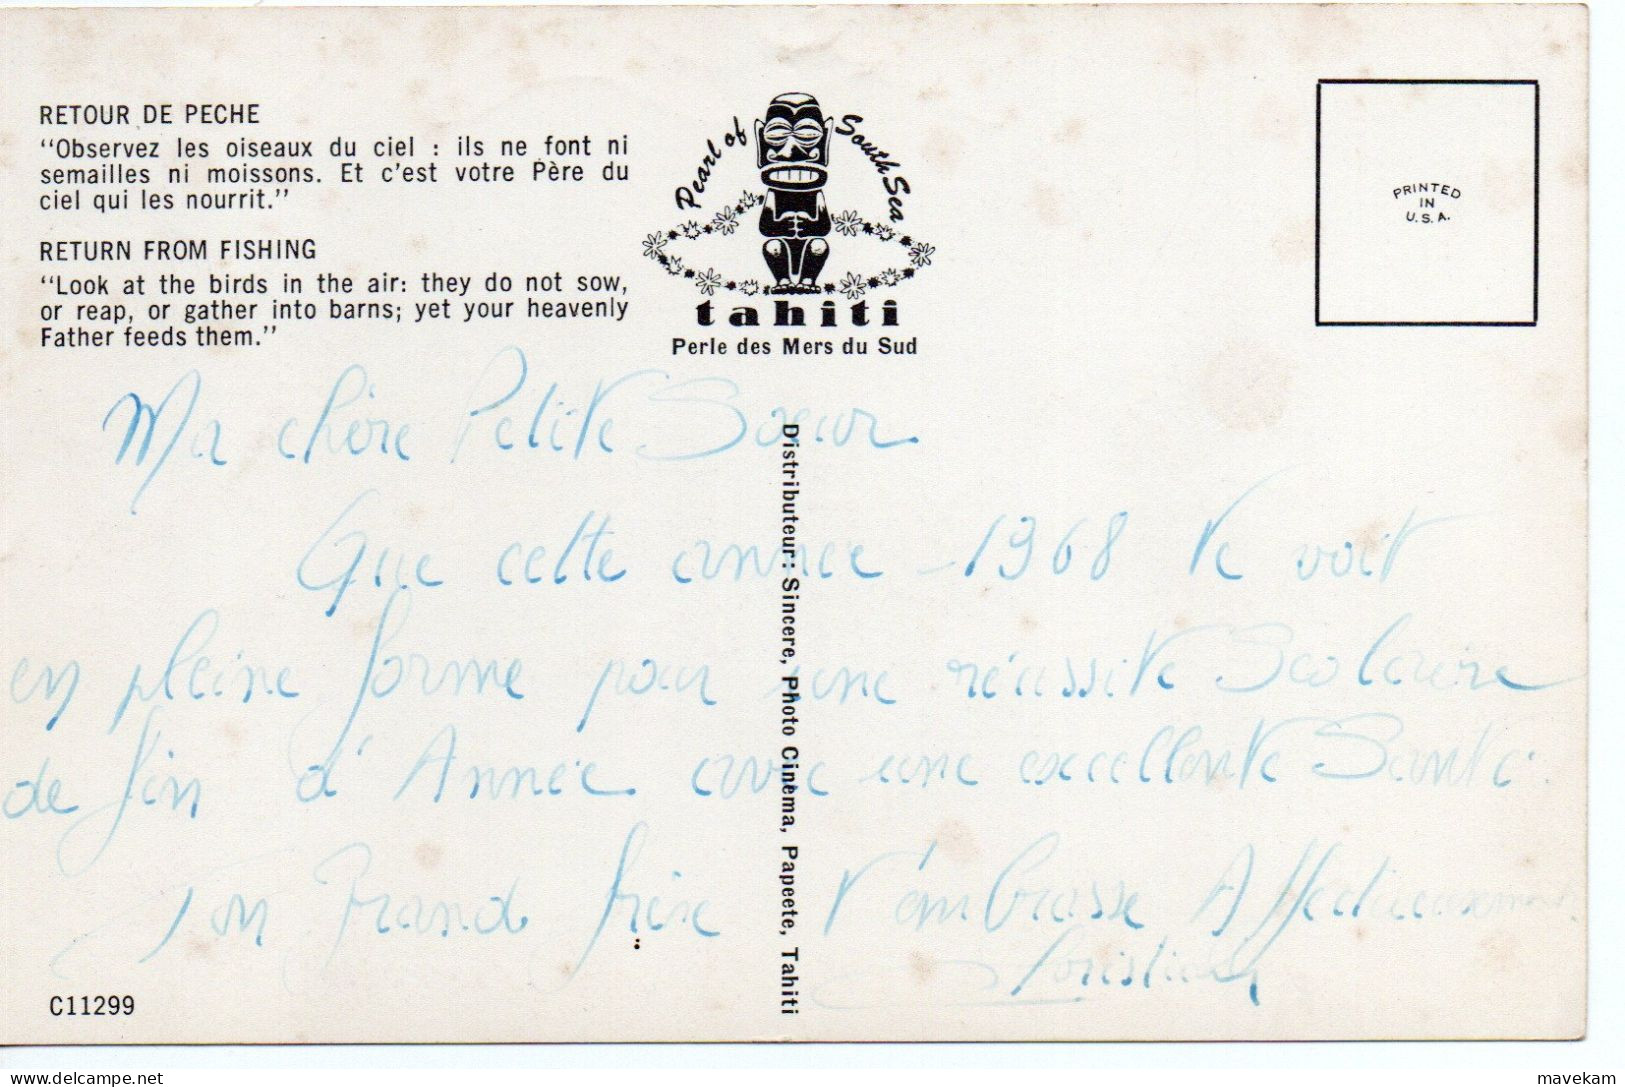 RETOUR DE PECHE
"Observez les oiseaux du ciel : ils ne font ni
semailles ni moissons. Et c'est votre Père du
ciel qui les nourrit."
RETURN FROM FISHING
"Look at the birds in the air: they do not sow,
or reap, or gather into barns; yet your heavenly
Father feeds them."
Pearl of South Sea
tahiti
Perle des Mers du Sud
PRINTED
IN
U.S.A.
Ma chère Petite Soeur
Que cette année 1968 te voit
en pleine forme pour une réussite Scolaire
de fin d'Année avec une excellente Santé.
Ton Grand frère t'embrasse Affectueusement
Christian
Distributeur: Sincere, Photo Cinèma, Papeete, Tahiti
C11299
delcampe.net
mavekam